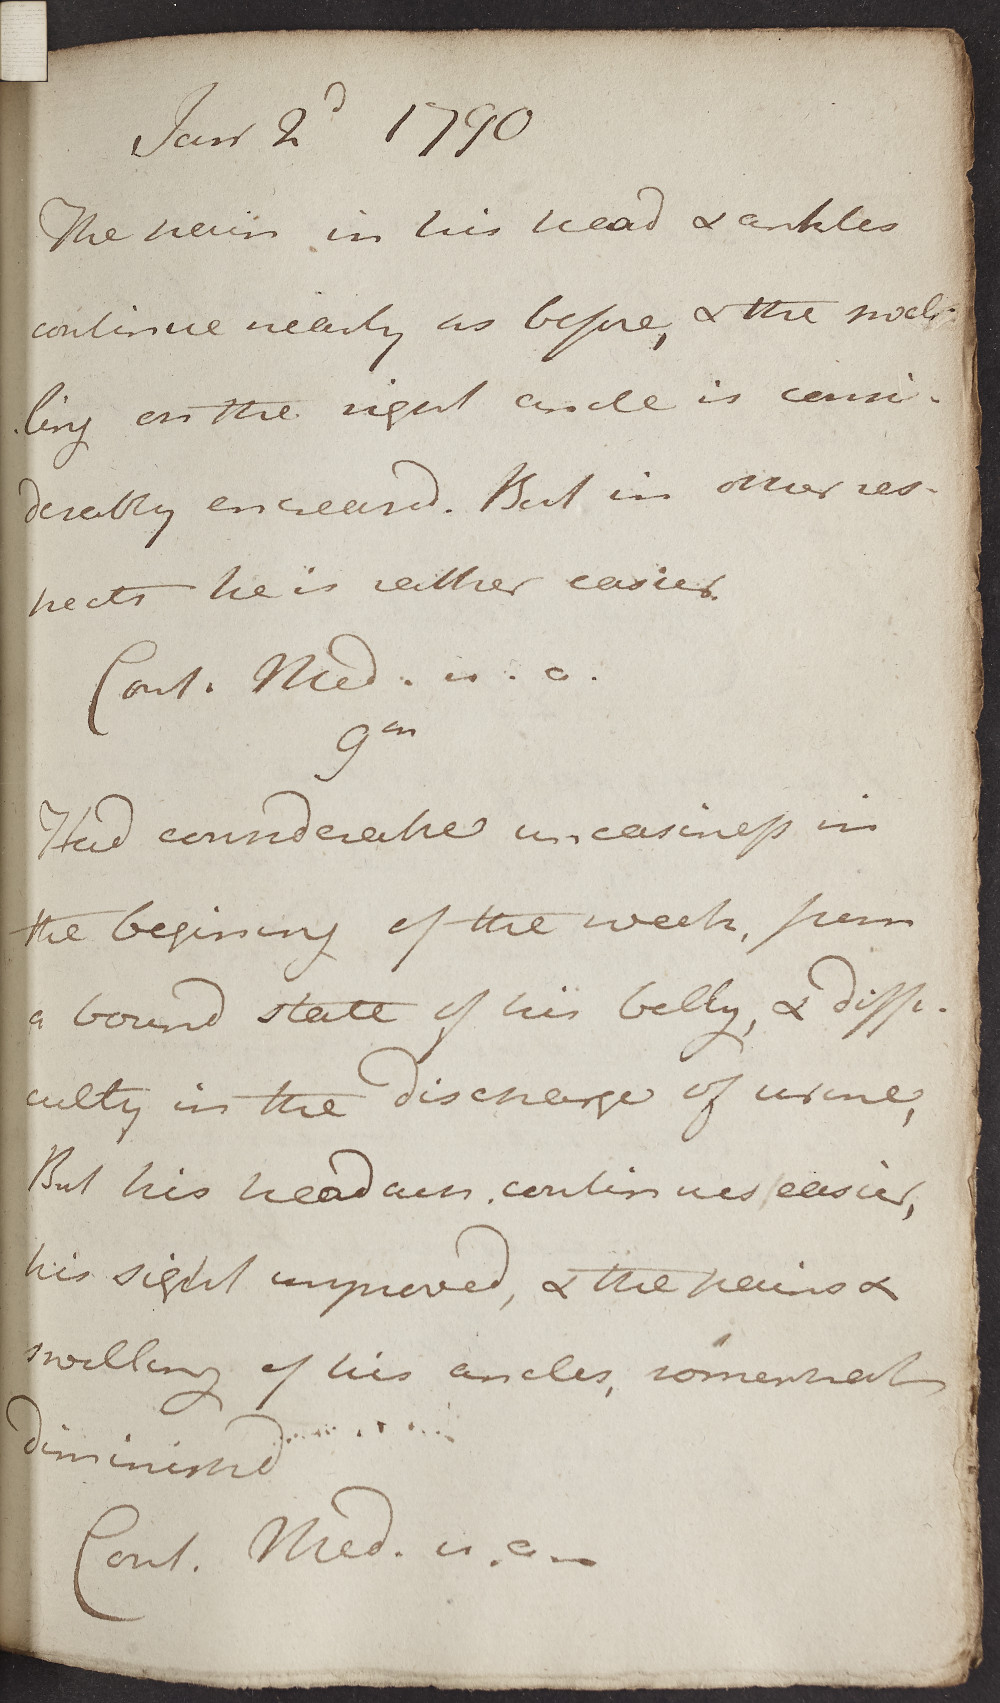 Jany 2d 1790
The pain in his head & ankles
continue nearly as before, & the swel-
ling on the right ancle is consi-
derably encreased. But in other res-
pects he is rather easier.
Cont. Med. u. a.
9th
Had considerable uneasiness in
the begining of the week, from
a bound state of his belly, & diffi-
culty in the discharge of urine,
But his headach continues easier,
his sight improved, & the pains &
swelling of his ancles, somewhat
diminished
Cont. Med. u. a.